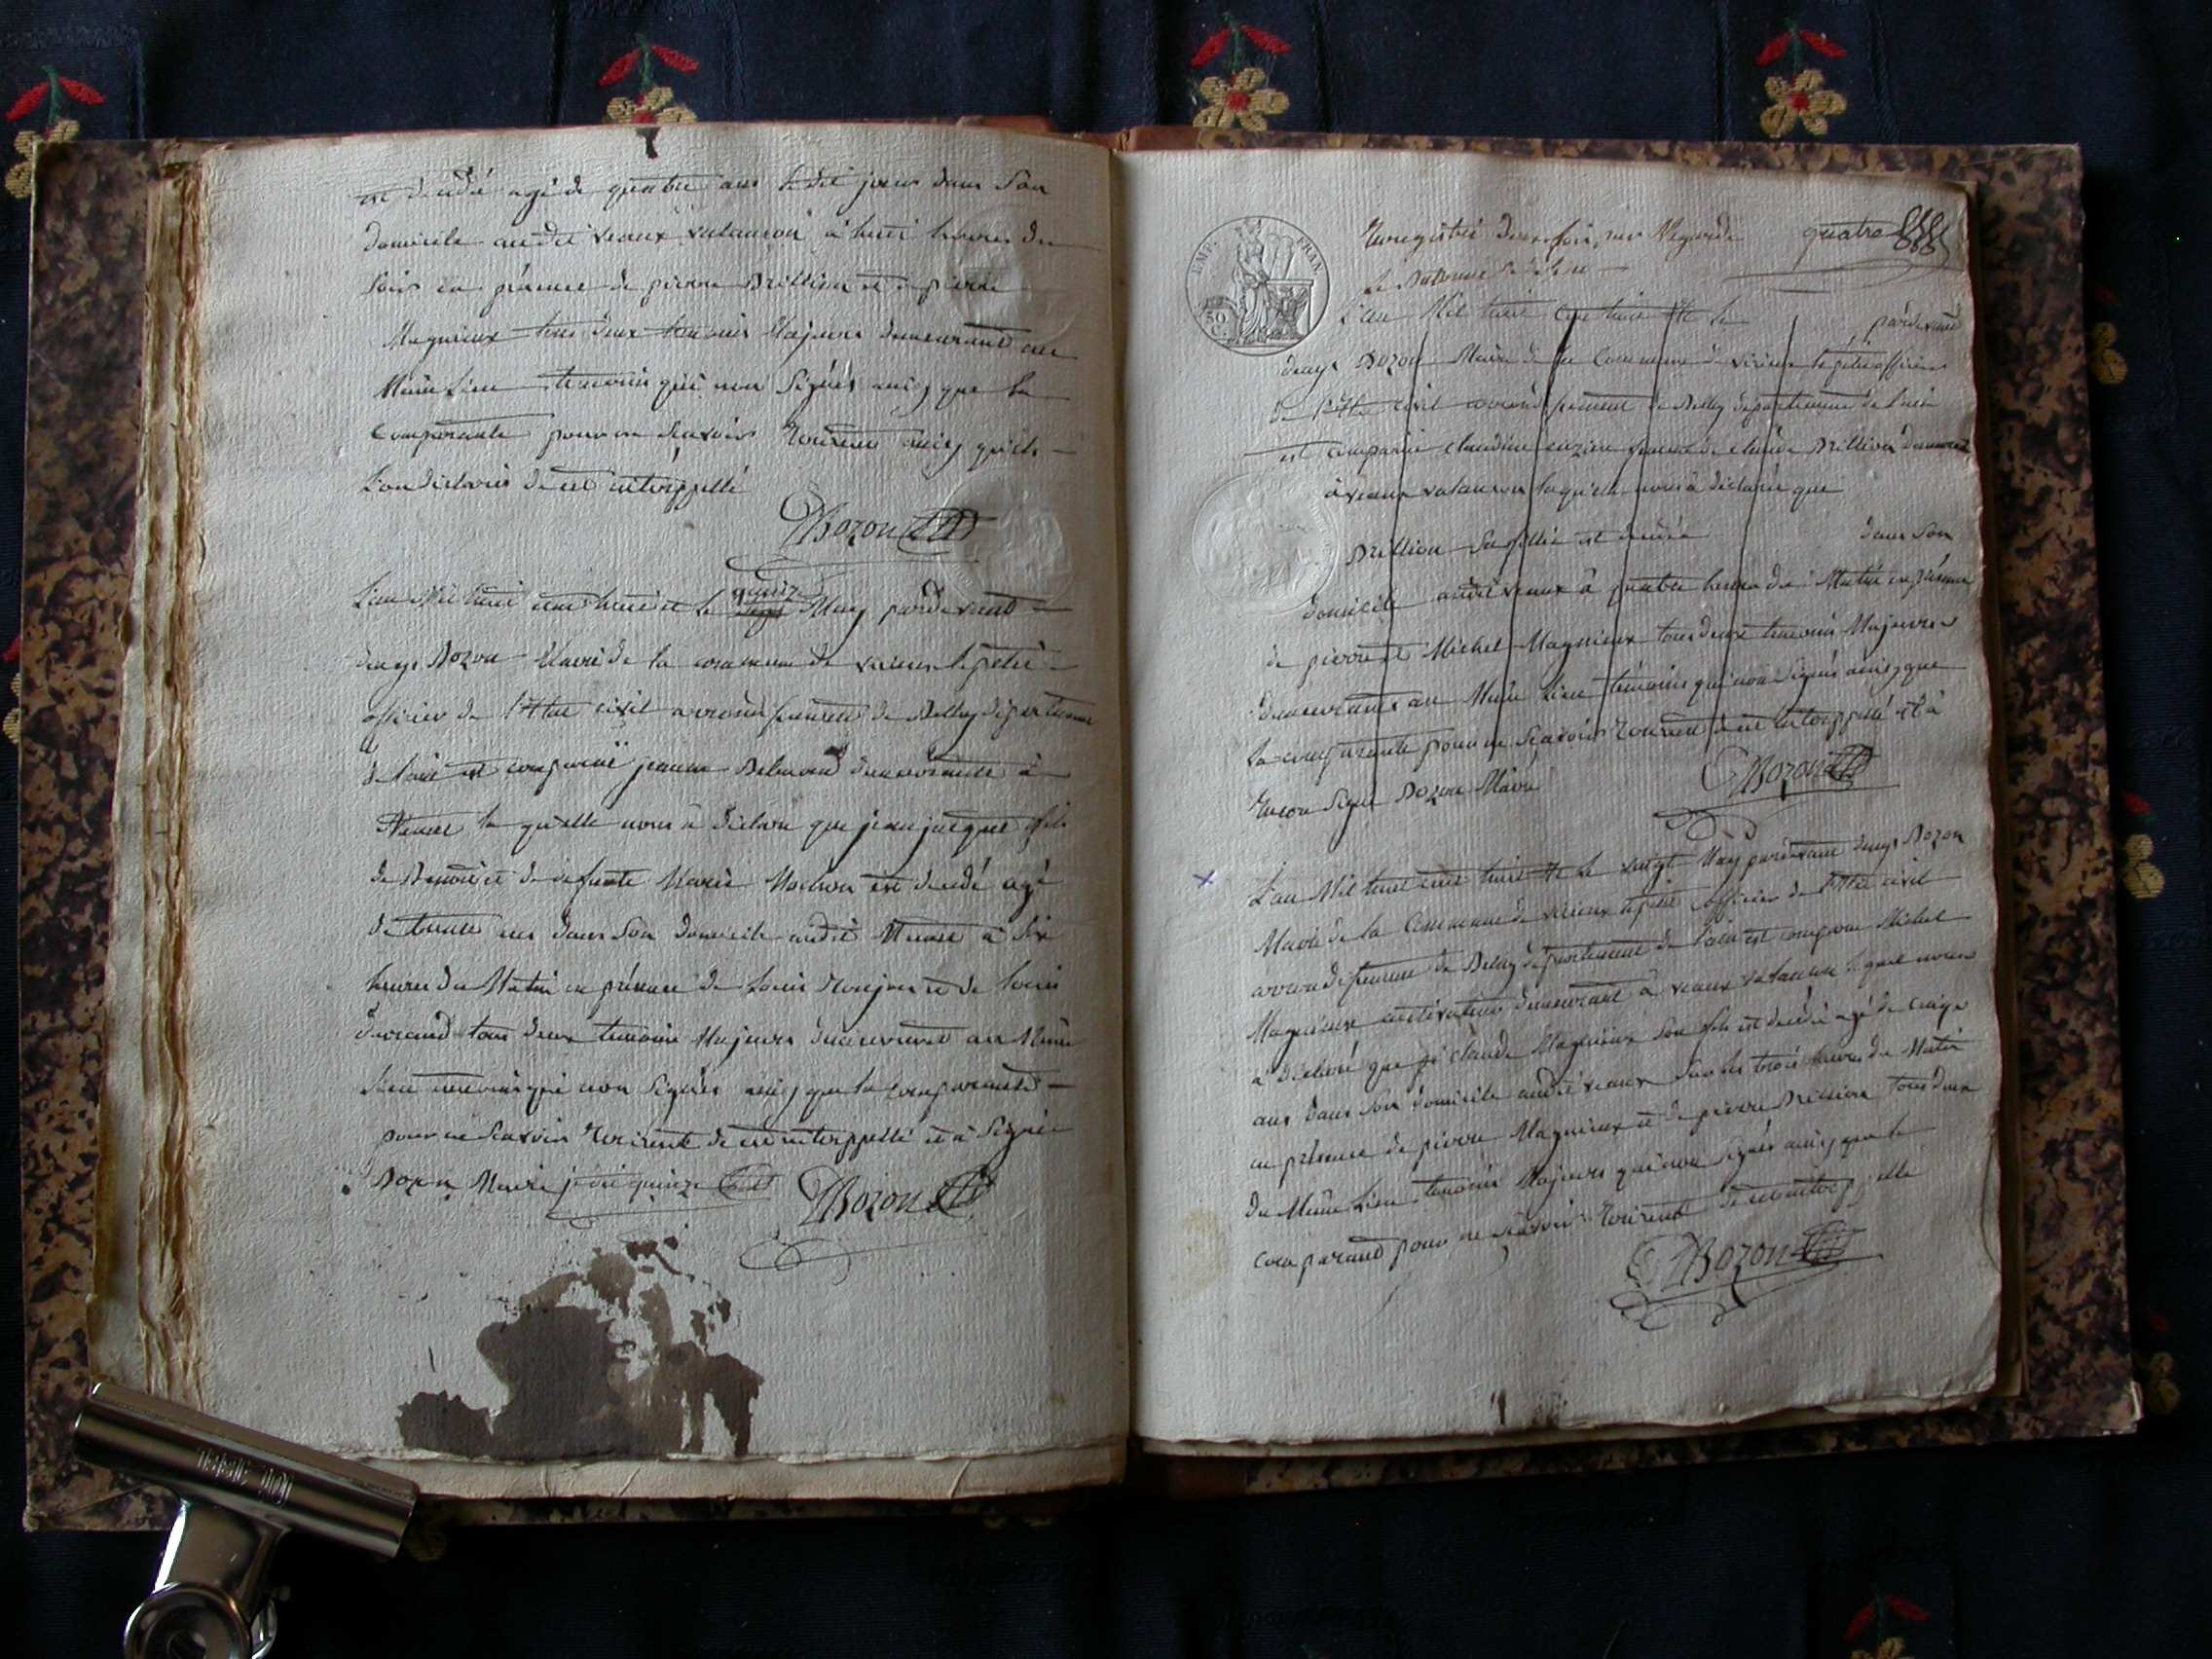 est décédé agé de quatre ans ledit jour dans son
domicile audit veaux valancon à huit heures du
soir en présence de pierre Brillion et de pierre
Magnieux tous deux temoins Majeurs demeurant au
Même Lieu temoins qui non signés ainsy que la
comparante pour ne scavoir Ecrirent ainsy quils
Lon declarés de ce interppellé
DBozon
L'an Mil huit cent huit et le quinz May pardevant
denys Bozon Maire de la commune de virieux le petit
officier de l'Etat civil arrondissement de Belley departement
de l'ain est comparuë jeanne demeurante à
la quelle nous à déclaré que jean jacques fils
de Benoit et de defunte Marie est decedé agé
de trente ans dans son domicile audit à six
heures du Matin en présence de Louis et de Louis
durand tous deux temoins Majeurs demeurant au Même
Lieu temoins qui non signés ainsy que la comparante
pour ne scavoir Ecrirent de ce interppellé et à signé
Bozon Maire je dit quinze DBozon
Enregistré deux fois par Megarde quatre
EMP. FRAN.
50
C.
L'an Mil huit cent huit et le pardevant
denys Bozon Maire de la Commune de virieux le petit officier
de l'Etat civil arrondissement de Belley departement de l'ain
est comparuë claudine femme de claude Brillion demeurant
à veaux valancon laquelle nous à déclarée que
Brillion sa fille est decedée dans son
domicile audit veaux à quatre heures du Matin en présence
de pierre et Michel Magnieux tous deux temoins Majeurs
demeurants au Même Lieu temoins qui non signés ainsy que
la comparante pour ne scavoir Ecrirent de ce interppellé et à
signé Bozon Maire DBozon
L'an Mil huit cent huit et le vingt May pardevant denys Bozon
Maire de la Commune de virieux le petit officier de l'Etat civil
arrondissement de Belley departement de l'ain est comparu Michel
Magnieux cultivateur demeurant à veaux valancon lequel nous
à declaré que claude Magnieux son fils est decedé agé de cinq
ans dans son domicile audit veaux sur les trois heures du Matin
en présence de pierre Magnieux et de pierre Brillion tous deux
du Même Lieu temoins Majeurs qui non signés ainsy que le
comparant pour ne scavoir Ecrirent de ce interppellé
DBozon